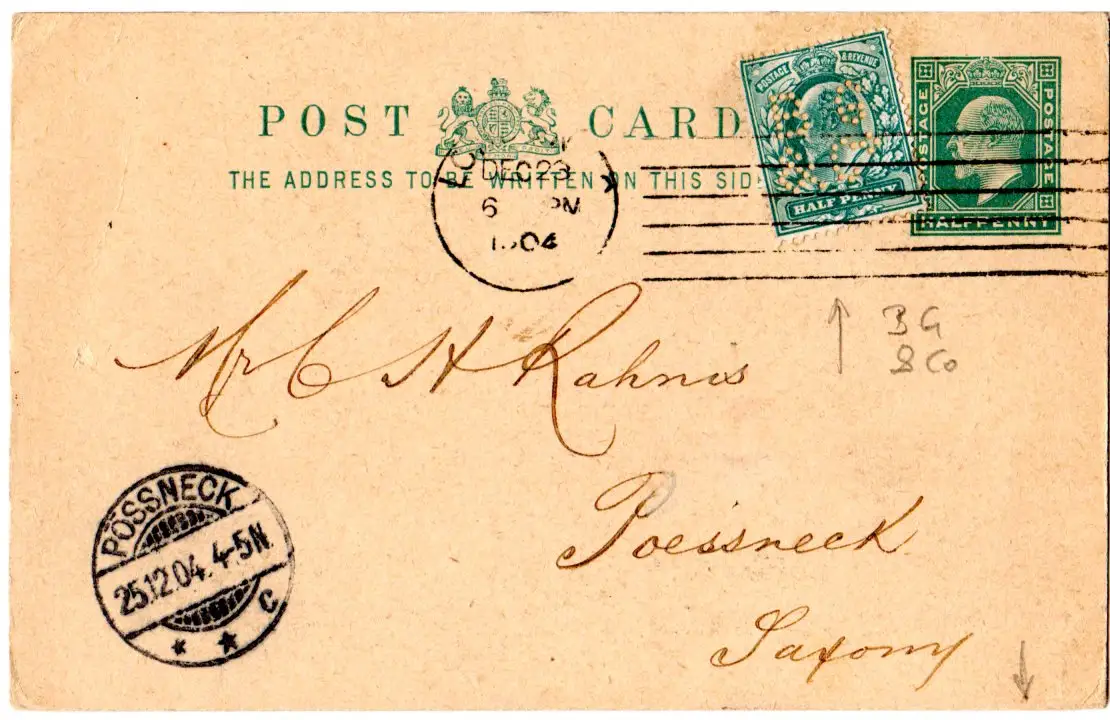 POST CARD
THE ADDRESS TO BE WRITTEN ON THIS SIDE
POSTAGE & REVENUE
HALF PENNY
POSTAGE POSTAGE
HALFPENNY
DEC 23
6 PM
1904
Mr C H Rahnis
BG
& Co
Poessneck
Saxony
PÖSSNECK
25.12.04. 4-5N
C